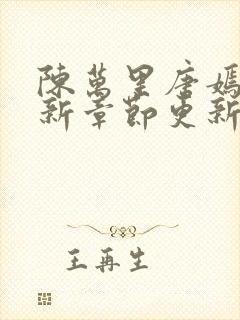 陳萬里唐嫣
新章節更新
王再生